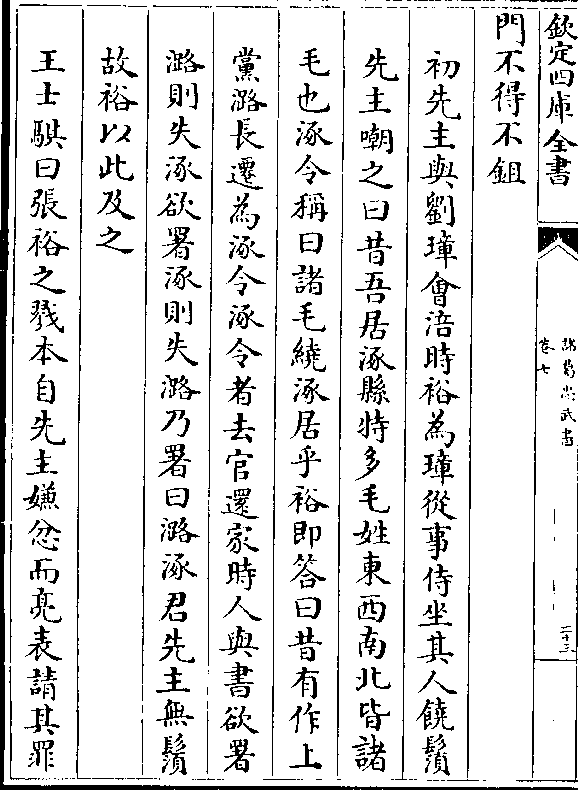 欽定四庫全書
諸葛忠武書
卷七
二十三
門不得不鉏
初先主與劉璋會涪時裕為璋從事侍坐其人饒鬚
先主嘲之曰昔吾居涿縣特多毛姓東西南北皆諸
毛也涿令稱曰諸毛繞涿居乎裕即答曰昔有作上
黨潞長遷為涿令涿令者去官還家時人與書欲署
潞則失涿欲署涿則失潞乃署曰潞涿君先主無鬚
故裕以此及之
王士騏曰張裕之戮本自先主嫌忿而亮表請其罪